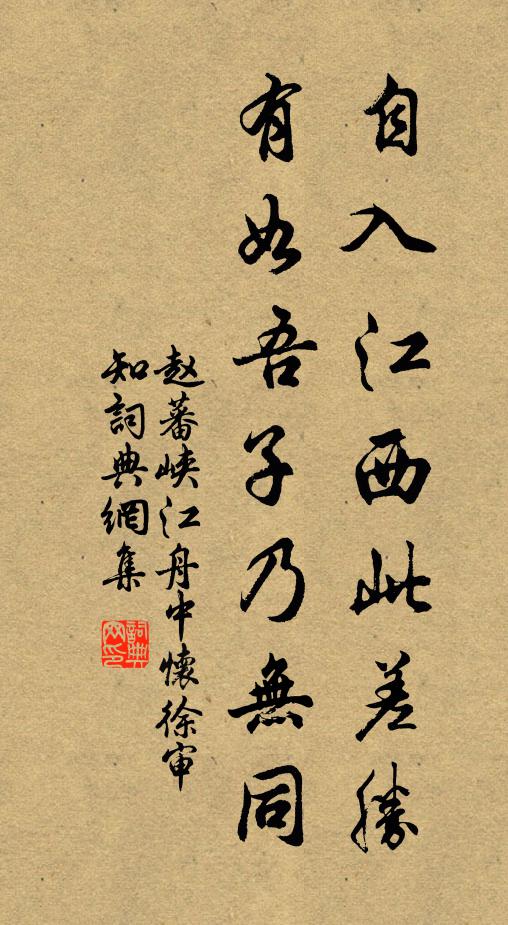 自入江西此差勝
有如吾子乃無同
赵蕃峽江舟中懷徐审
知詞典網集
詞典
网印